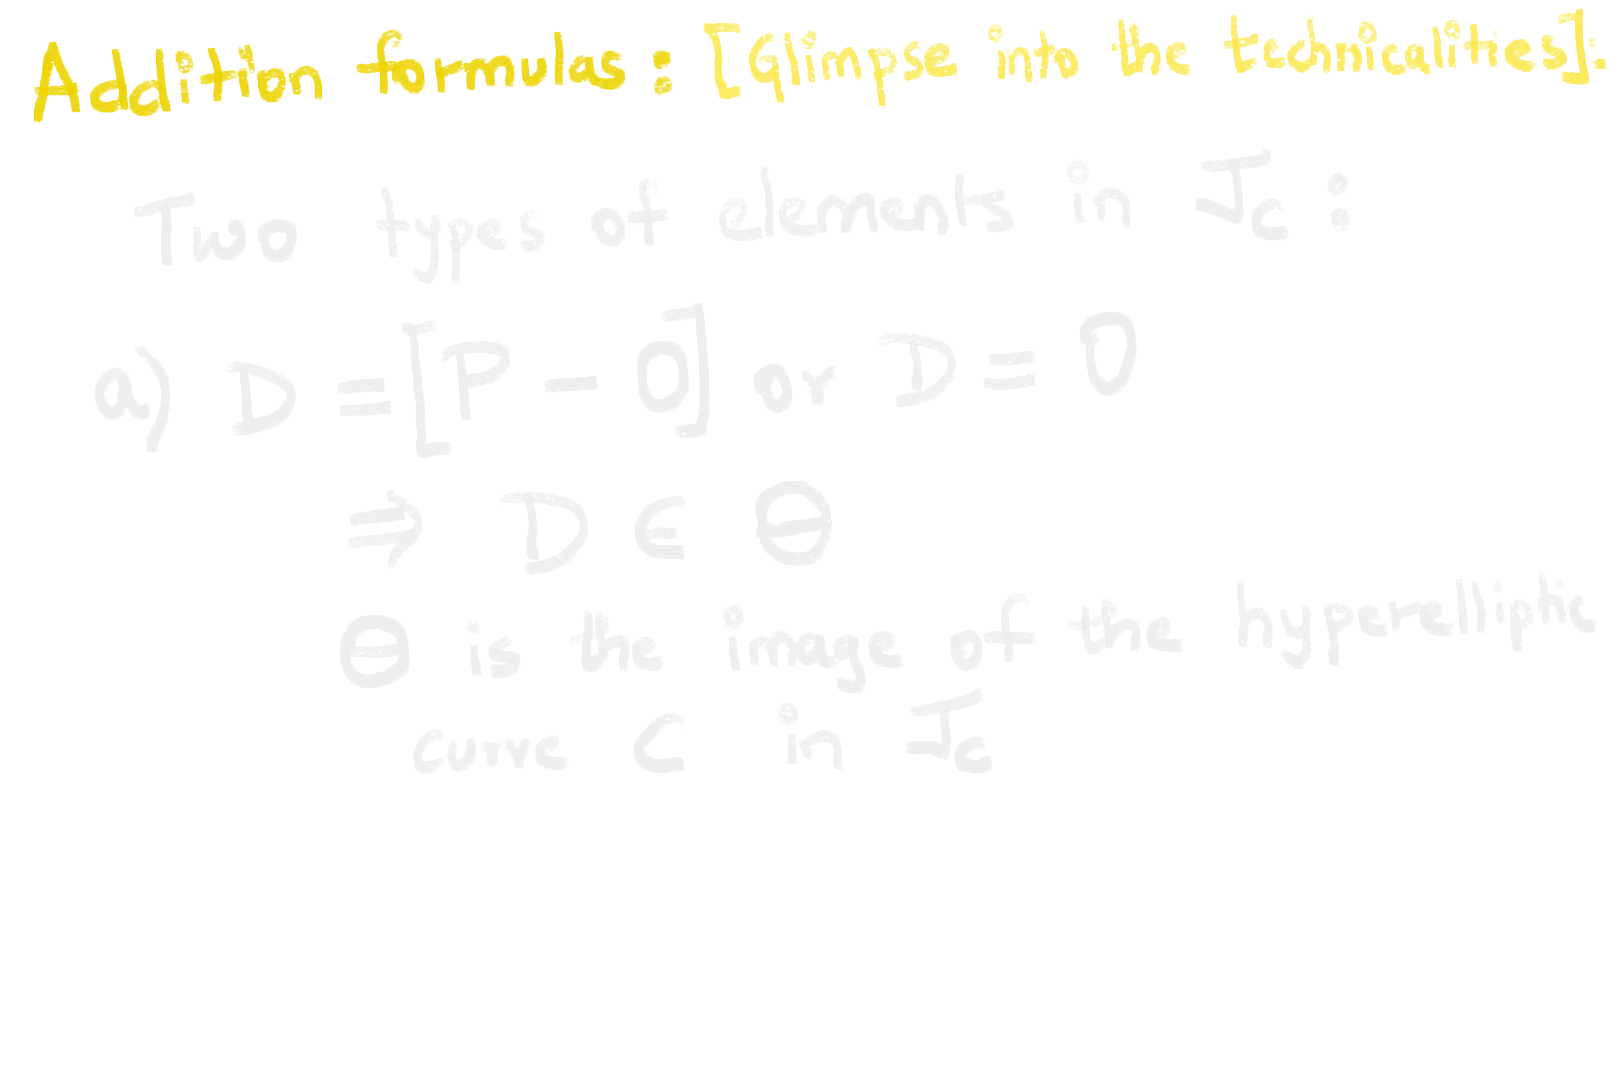 Addition formulas : [Glimpse into the technicalities].
Two types of elements in J_C :
a) D = [P - O] or D = O
⇒ D ∈ Θ
Θ is the image of the hyperelliptic
curve C in J_C